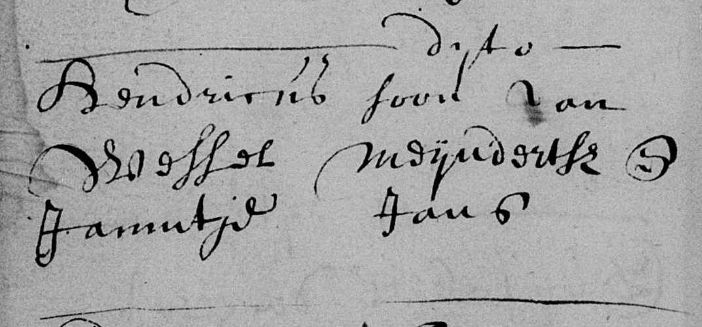 dyto
Hendricus soon van
Wessel Meyndertse &
Jannitje Jans